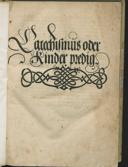 Catechismus oder
Kinder predig.